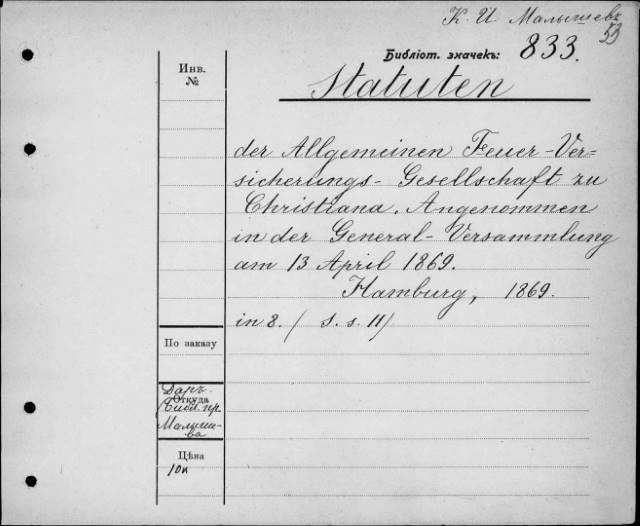 К. И. Малышевъ
53
Библіот. значекъ: 833.
Инв.
№
Statuten
der Allgemeinen Feuer-Ver=
sicherungs-Gesellschaft zu
Christiana. Angenommen
in der General-Versammlung
am 13 April 1869.
Hamburg, 1869.
in 8. / S. s. 11/
По заказу
Даръ
Откуда
Библ. пр.
Малыше-
ва
Цѣна
10к